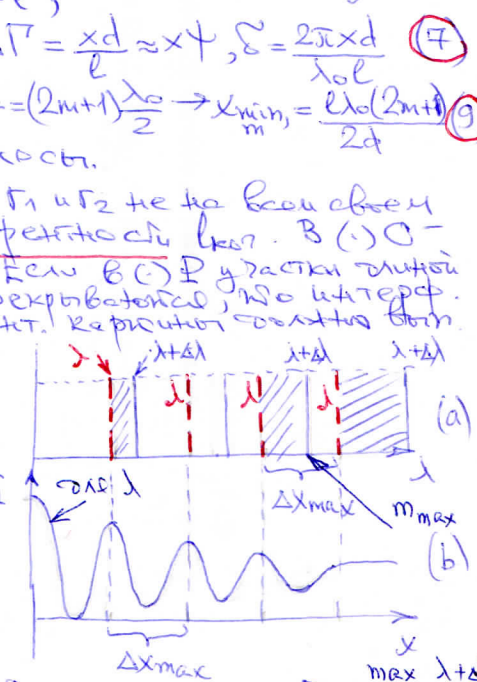 Γ = xd/l ≈ xψ, δ = 2πxd/λ₀l (7)
=(2m+1)λ₀/2 → x min, m = lλ₀(2m+1)/2d (9
r₁ и r₂ не на всем своем
рентности lког. В (·) O -
Если в (·) P участки длиной
рекрываются, то интерф.
нт. картины должно вып
λ λ+Δλ λ+Δλ λ+Δλ
λ λ λ (a)
λ
ΔXmax mmax
для λ
(b)
x
ΔXmax
max λ+Δ